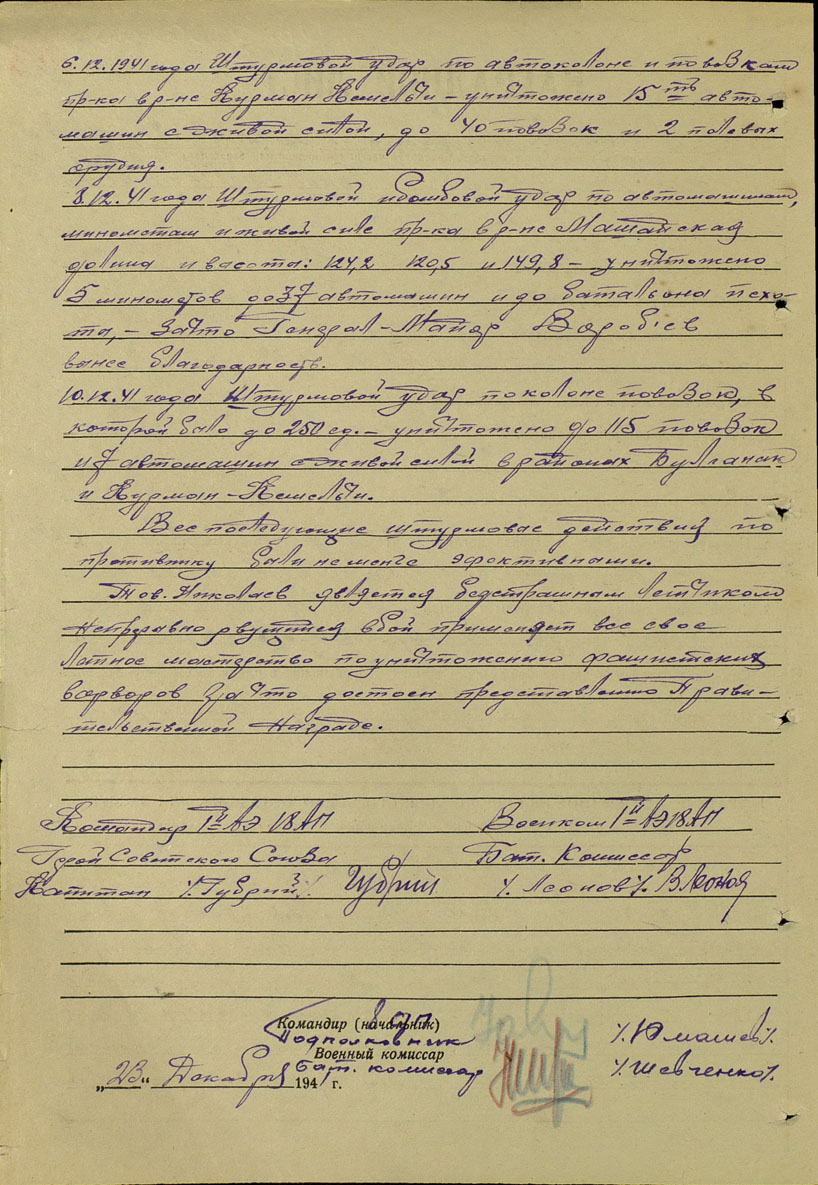 6.12.1941 года Штурмовой удар по автоколоне и повозкам
пр-ка в р-не Курман Кемельчи – уничтожено 15ть авто-
машин с живой силой, до 40 повозок и 2 полевых
орудия.
8.12.41 года Штурмовой и бомбовой удар по автомашинам,
минометам и живой силе пр-ка в р-не
долина и высота: 124,2 120,5 и 149,8 – уничтожено
5 минометов до 37 автомашин и до батальона пехо-
ты, – за что Генерал-Майор Вороб'ев
вынес благодарность.
10.12.41 года Штурмовой удар по колоне повозок, в
которой было до 250 ед. – уничтожено до 115 повозок
и 7 автомашин с живой силой в районах Булганак
и Курман-Кемельчи.
Все последующие штурмовые действия по
противнику были не менее эфективными.
Тов. Николаев является бесстрашным летчиком
рвущийся в бой применяет все свое
летное мастерство по уничтожению фашистских
варворов за что достоен представлению Прави-
тельственной Награде.
Командир Iй АЭ 18АП
Военком Iй АЭ 18АП
Герой Советского Союза
Бат. Комиссар
Капитан /.Губрий/. Губрий
/.Леонов/. ВЛеонов
Командир (начальник) 18АП
Подполковник
/.Юмашев/.
Военный комиссар
бат. комиссар
/.Шевченко/.
„23“ Декабря 1941 г.